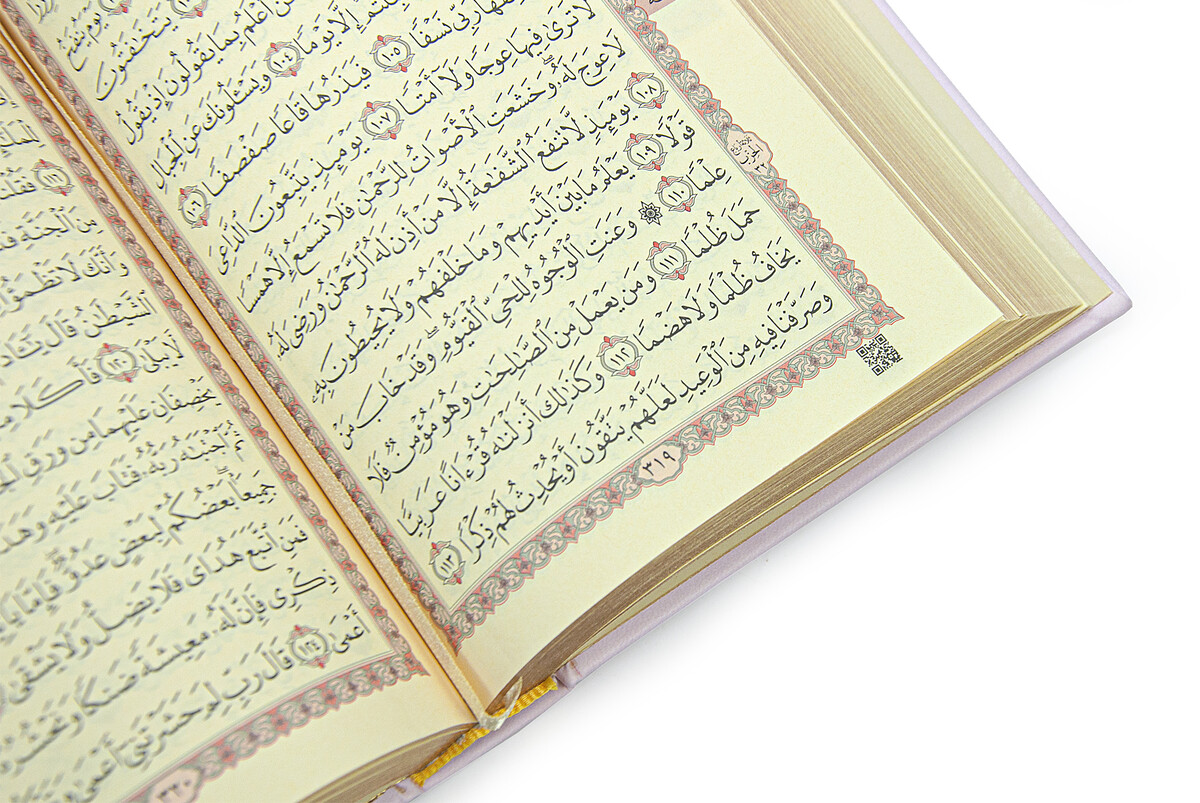 يَتَخَٰفَتُونَ
أَعْلَمُ بِمَا يَقُولُونَ إِذْ يَقُولُ
إِلَّا يَوْمًا ١٠٤ وَيَسْـَٔلُونَكَ عَنِ ٱلْجِبَالِ
رَبِّي نَسْفًا ١٠٥ فَيَذَرُهَا قَاعًا صَفْصَفًا ١٠٦
لَّا تَرَىٰ فِيهَا عِوَجًا وَلَآ أَمْتًا ١٠٧ يَوْمَئِذٍ يَتَّبِعُونَ ٱلدَّاعِيَ
لَا عِوَجَ لَهُۥۖ وَخَشَعَتِ ٱلْأَصْوَاتُ لِلرَّحْمَٰنِ فَلَا تَسْمَعُ إِلَّا هَمْسًا
١٠٨ يَوْمَئِذٍ لَّا تَنفَعُ ٱلشَّفَٰعَةُ إِلَّا مَنْ أَذِنَ لَهُ ٱلرَّحْمَٰنُ وَرَضِيَ لَهُۥ
قَوْلًا ١٠٩ يَعْلَمُ مَا بَيْنَ أَيْدِيهِمْ وَمَا خَلْفَهُمْ وَلَا يُحِيطُونَ بِهِۦ
عِلْمًا ١١٠ ۞ وَعَنَتِ ٱلْوُجُوهُ لِلْحَيِّ ٱلْقَيُّومِۖ وَقَدْ خَابَ مَنْ
حَمَلَ ظُلْمًا ١١١ وَمَن يَعْمَلْ مِنَ ٱلصَّٰلِحَٰتِ وَهُوَ مُؤْمِنٌ فَلَا
يَخَافُ ظُلْمًا وَلَا هَضْمًا ١١٢ وَكَذَٰلِكَ أَنزَلْنَٰهُ قُرْءَانًا عَرَبِيًّا
وَصَرَّفْنَا فِيهِ مِنَ ٱلْوَعِيدِ لَعَلَّهُمْ يَتَّقُونَ أَوْ يُحْدِثُ لَهُمْ ذِكْرًا ١١٣
٣١٩
١١٦
مِنَ ٱلْجَنَّةِ
وَأَنَّكَ لَا تَظْمَؤُا۟
ٱلشَّيْطَٰنُ قَالَ
لَّا يَبْلَىٰ ١٢٠ فَأَكَلَا
يَخْصِفَانِ عَلَيْهِمَا مِن وَرَقِ
ثُمَّ ٱجْتَبَٰهُ رَبُّهُۥ فَتَابَ عَلَيْهِ
جَمِيعًۢاۖ بَعْضُكُمْ لِبَعْضٍ عَدُوٌّۖ فَإِمَّا
فَمَنِ ٱتَّبَعَ هُدَايَ فَلَا يَضِلُّ وَلَا يَشْقَىٰ
ذِكْرِي فَإِنَّ لَهُۥ مَعِيشَةً ضَنكًا
أَعْمَىٰ ١٢٤ قَالَ رَبِّ لِمَ حَشَرْتَنِيٓ أَعْمَىٰ
٣٢٠